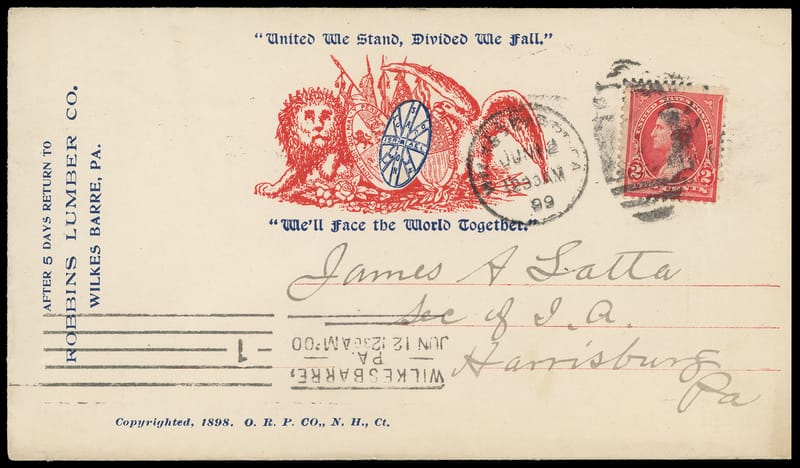 "United We Stand, Divided We Fall."
"We'll Face the World Together."
AFTER 5 DAYS RETURN TO
ROBBINS LUMBER CO.
WILKES BARRE, PA.
UNITED STATES POSTAGE
2 2
CENTS
JUN 12
1230AM
99
James A Latta
Sec of I. A.
Harrisburg
Pa
WILKESBARRE,
PA.
JUN 12 1230AM '00
1
Copyrighted, 1898. O. R. P. CO., N. H., Ct.